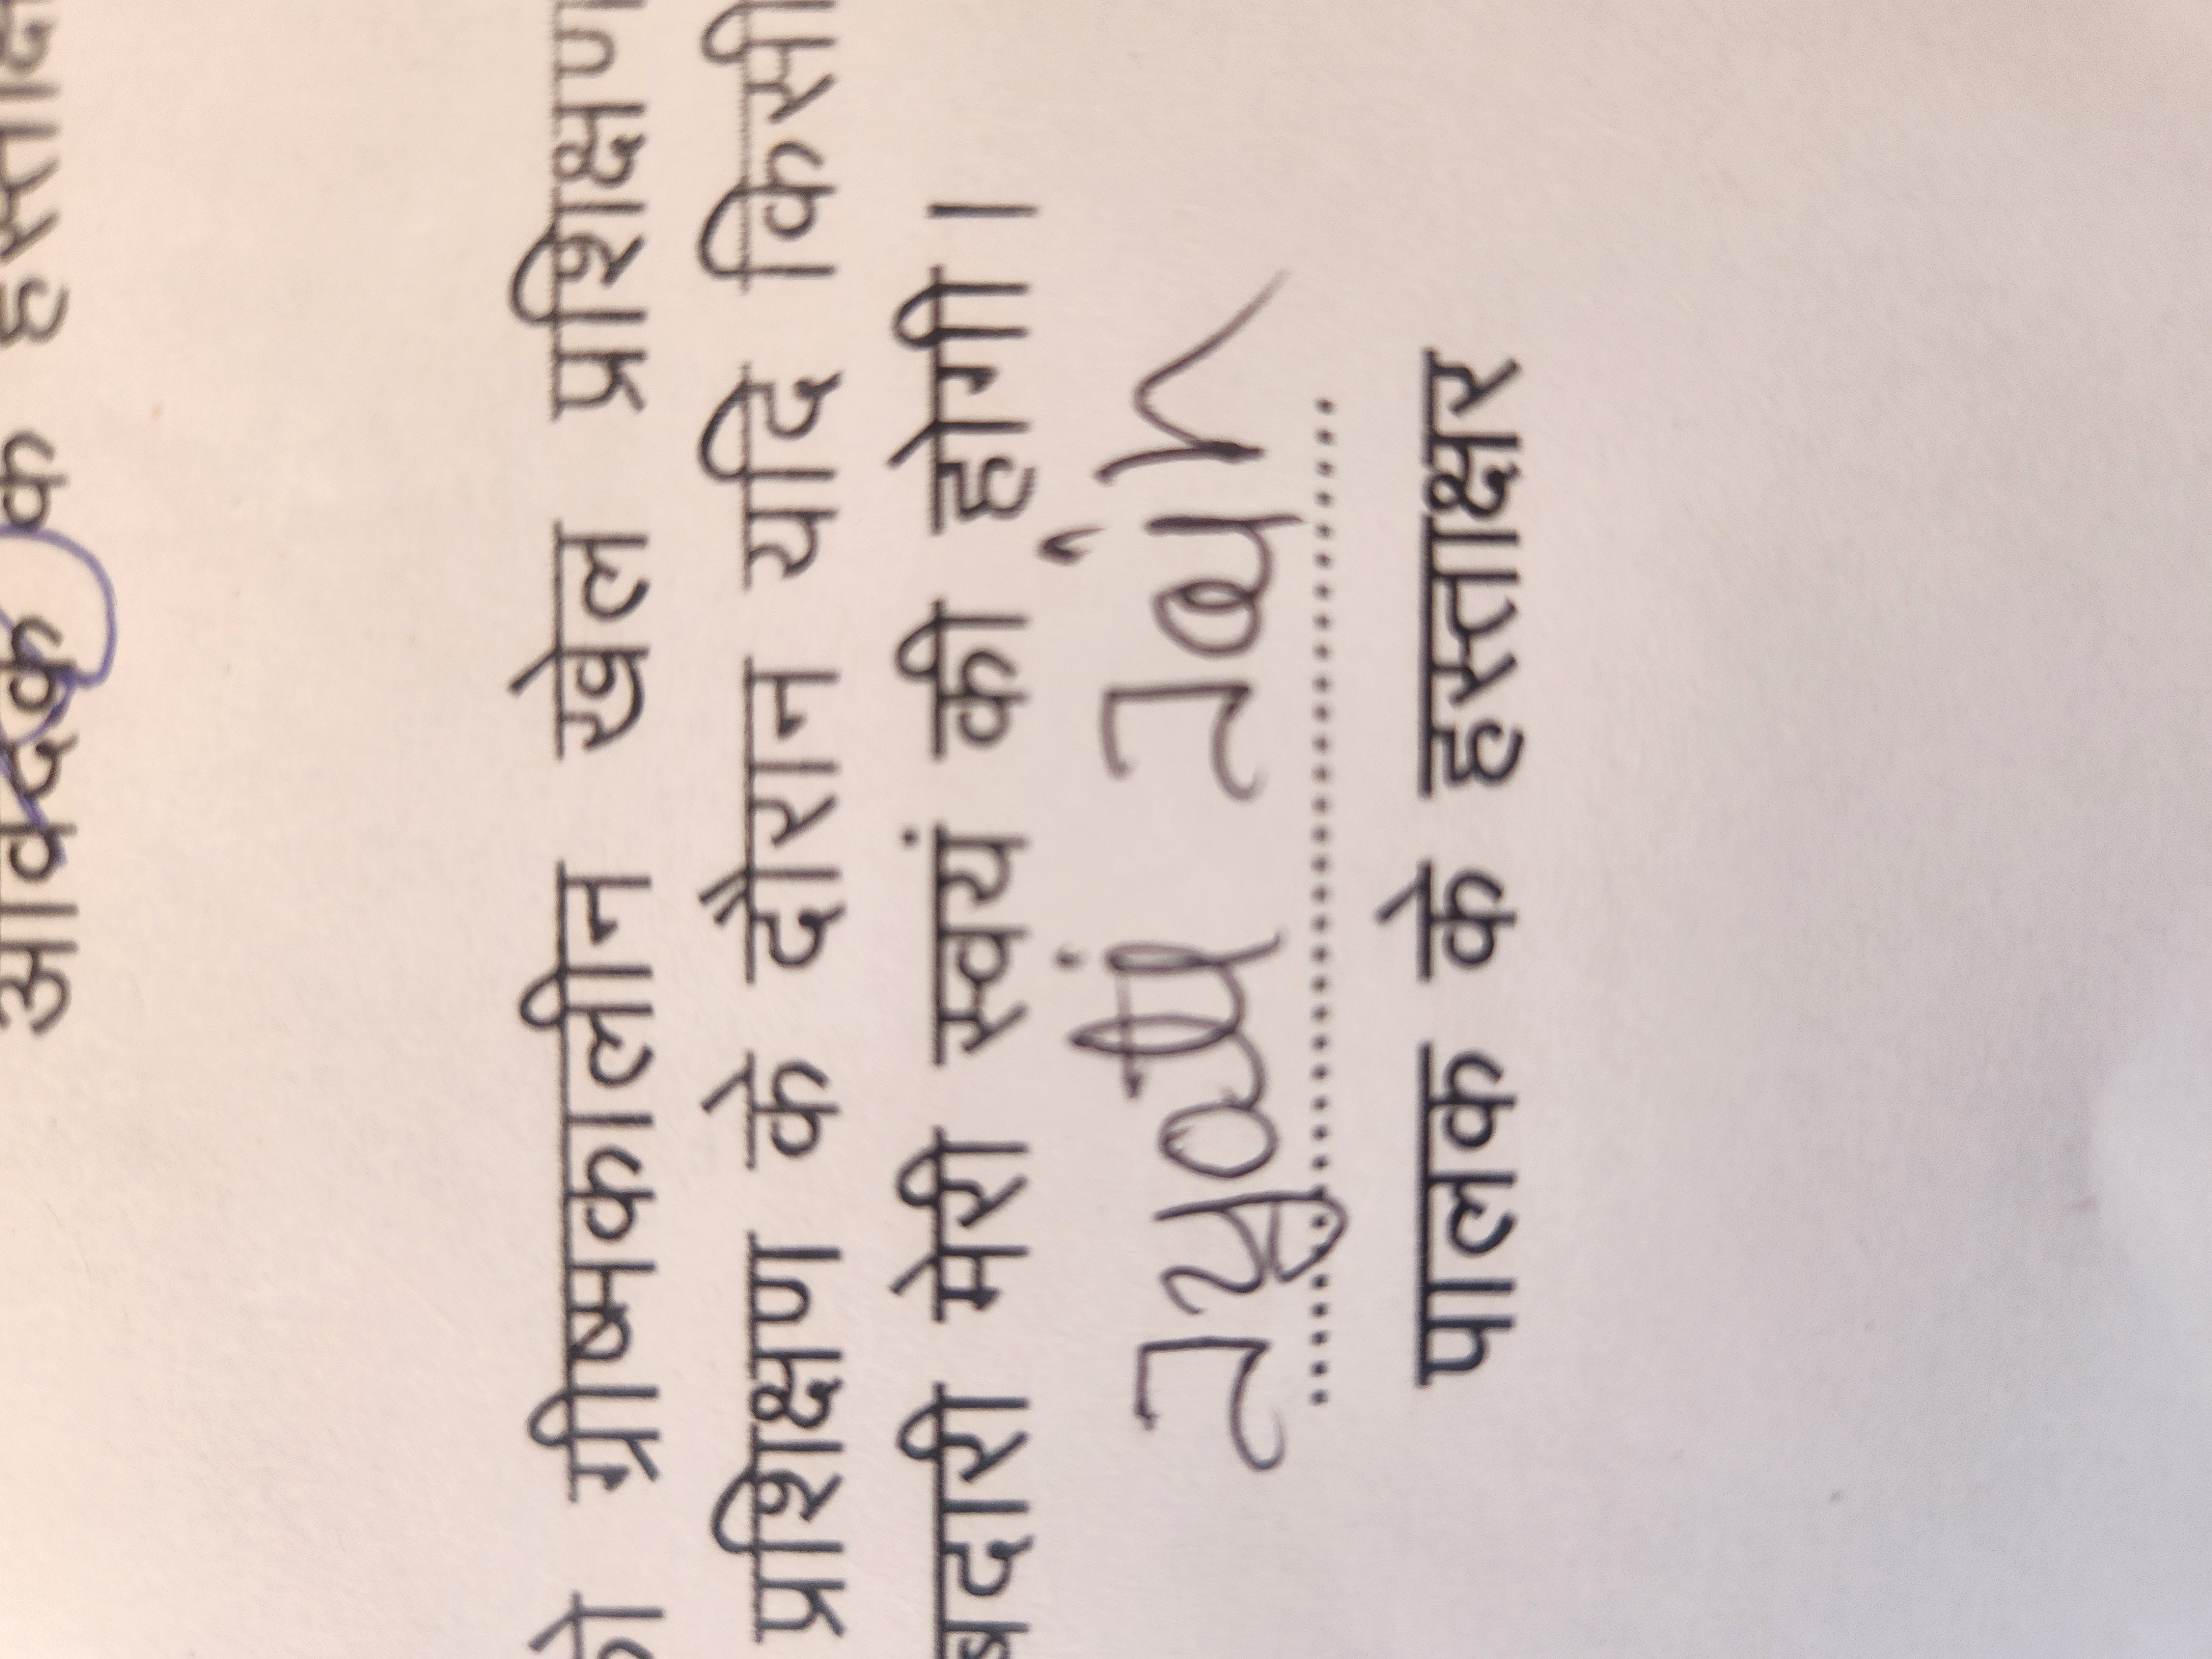 आवेदक के
ग्रीष्मकालीन खेल प्रशिक्षण
प्रशिक्षण के दौरान यदि किसी
मेरी स्वयं की होगी।
Jyoti Jain
पालक के हस्ताक्षर